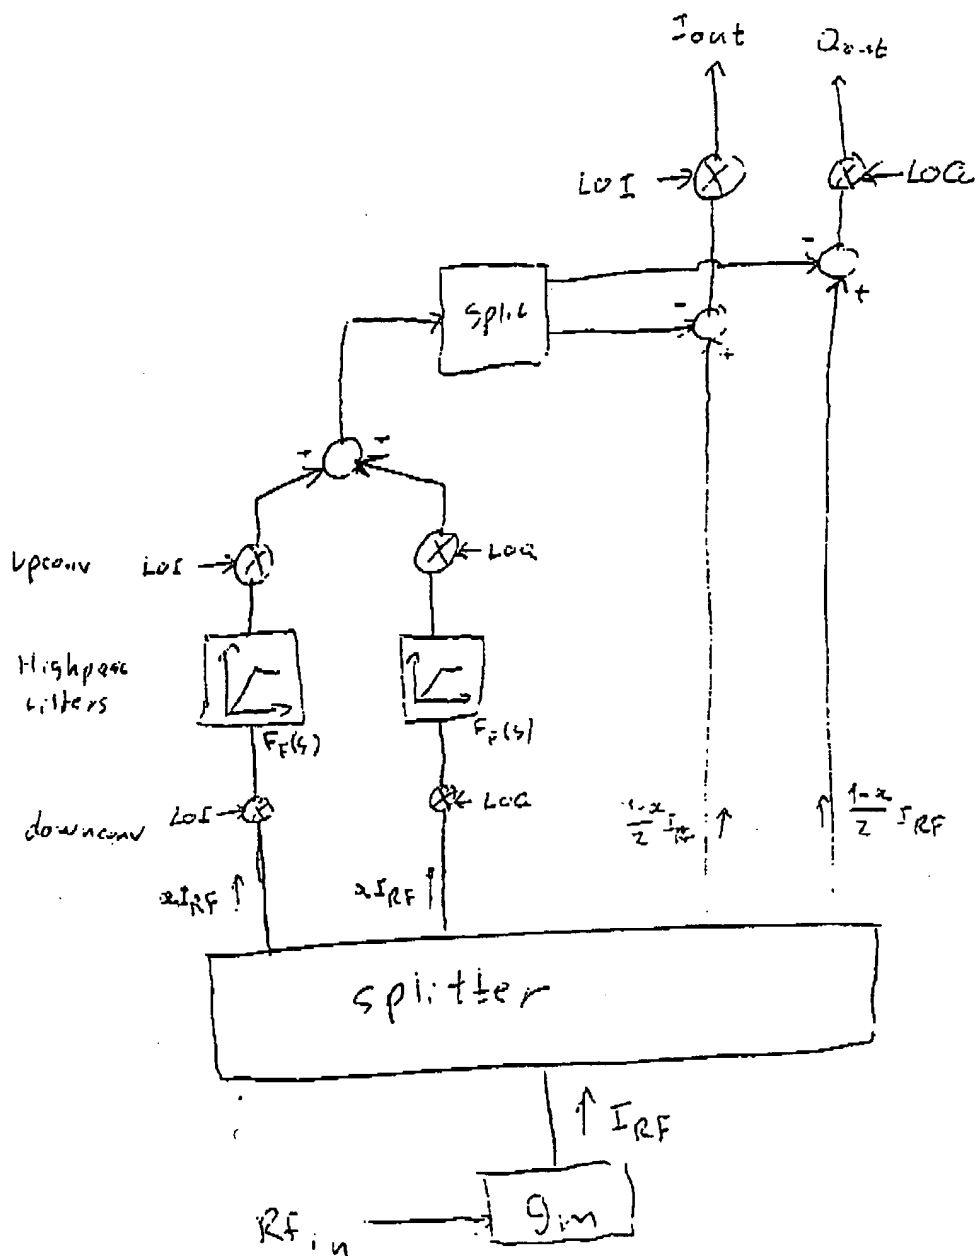 Iout
Qout
LOI
LOQ
split
-
+
-
+
+
+
Upconv
LOI
LOQ
Highpass
filters
FF(s)
FF(s)
downconv
LOI
LOQ
xIRF
xIRF
1-x/2 IRF
1-x/2 IRF
splitter
IRF
gm
RFin